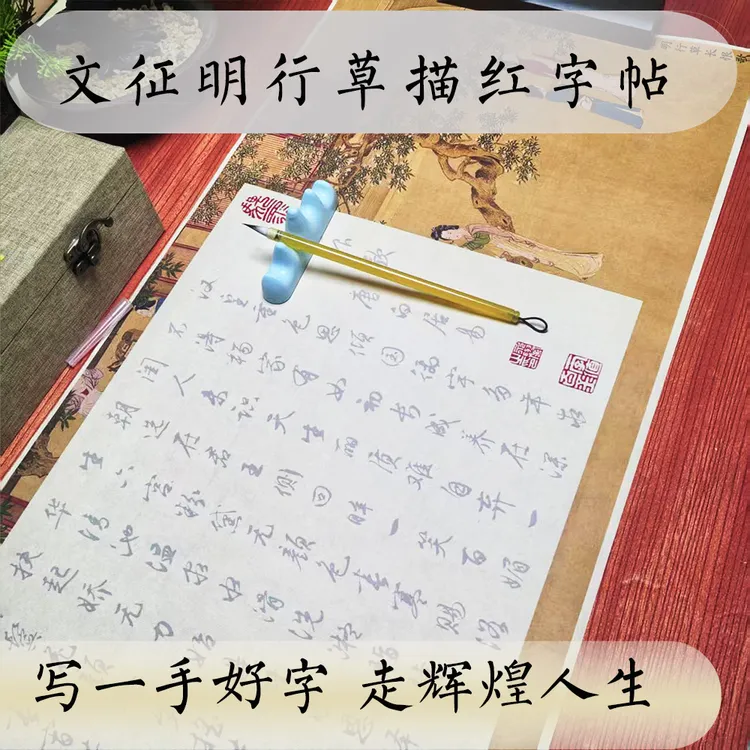 文征明行草描红字帖
明行草长恨
恨歌
唐白居易
汉皇重色思倾国御宇多年求
不得杨家有女初长成养在深
闺人未识天生丽质难自弃一
朝选在君王侧回眸一笑百媚
生六宫粉黛无颜色春寒赐浴
华清池温泉水滑洗凝
扶起娇无力始
写一手好字 走辉煌人生